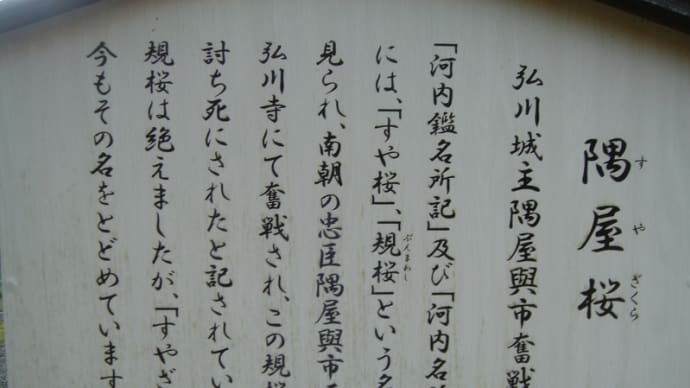 隅屋桜
すやざくら
弘川城主隅屋與市奮戦
「河内鑑名所記」及び「河内名
には、「すや桜」、「規桜」という名
ぶんまわし
見られ、南朝の忠臣隅屋與市
弘川寺にて奮戦され、この規桜
討ち死にされたと記されてい
規桜は絶えましたが、「すやざ
今もその名をとどめています